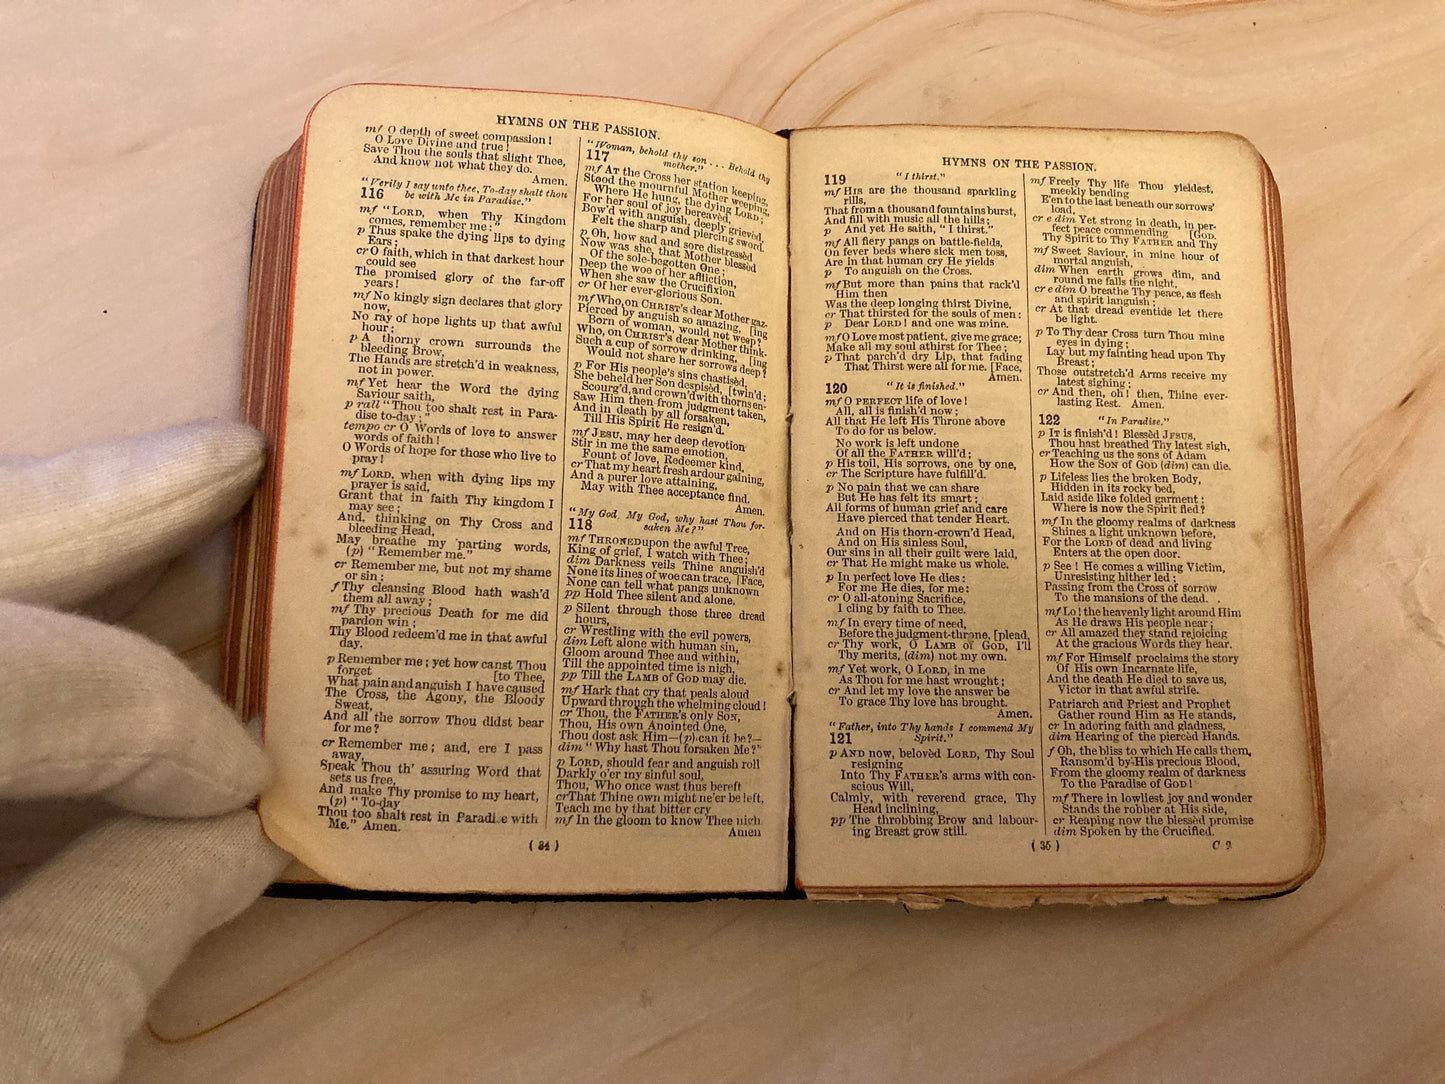 HYMNS ON THE PASSION.
mf O depth of sweet compassion!
O Love Divine and true!
Save Thou the souls that slight Thee,
And know not what they do.
Amen.
"Verily I say unto thee, To-day shalt thou
116 be with Me in Paradise."
mf "LORD, when Thy Kingdom
comes, remember me;"
p Thus spake the dying lips to dying
Ears;
cr O faith, which in that darkest hour
could see
The promised glory of the far-off
years!
mf No kingly sign declares that glory
now,
No ray of hope lights up that awful
hour;
p A thorny crown surrounds the
bleeding Brow,
The Hands are stretch'd in weakness,
not in power.
mf Yet hear the Word the dying
Saviour saith,
p rall "Thou too shalt rest in Para-
dise to-day;"
tempo cr O Words of love to answer
words of faith!
O Words of hope for those who live to
pray!
mf LORD, when with dying lips my
prayer is said,
Grant that in faith Thy kingdom I
may see;
And, thinking on Thy Cross and
bleeding Head,
May breathe my 'parting words,
(p) "Remember me."
cr Remember me, but not my shame
or sin;
f Thy cleansing Blood hath wash'd
them all away;
mf Thy precious Death for me did
pardon win;
Thy Blood redeem'd me in that awful
day.
p Remember me; yet how canst Thou
forget [to Thee,
What pain and anguish I have caused
The Cross, the Agony, the Bloody
Sweat,
And all the sorrow Thou didst bear
for me?
cr Remember me; and, ere I pass
away,
Speak Thou th' assuring Word that
sets us free,
And make Thy promise to my heart,
(p) "To-day
Thou too shalt rest in Paradise with
Me." Amen.
"Woman, behold thy son . . . Behold thy
117 mother."
mf AT the Cross her station keeping,
Stood the mournful Mother weeping,
Where He hung, the dying LORD;
For her soul of joy bereavèd,
Bow'd with anguish, deeply grievèd,
Felt the sharp and piercing sword.
p Oh, how sad and sore distressèd
Now was she, that Mother blessèd
Of the sole-begotten One;
Deep the woe of her affliction,
When she saw the Crucifixion
cr Of her ever-glorious Son.
mf Who, on CHRIST'S dear Mother gaz-
Pierced by anguish so amazing, [ing
Born of woman, would not weep?
Who, on CHRIST'S dear Mother think-
Such a cup of sorrow drinking, [ing
Would not share her sorrows deep?
p For His people's sins chastisèd,
She beheld her Son despisèd, [twin'd;
Scourg'd, and crown'd with thorns en-
Saw Him then from judgment taken,
And in death by all forsaken,
Till His Spirit He resign'd.
mf JESU, may her deep devotion
Stir in me the same emotion,
Fount of love, Redeemer kind,
cr That my heart fresh ardour gaining,
And a purer love attaining,
May with Thee acceptance find.
Amen.
"My God, My God, why hast Thou for-
118 saken Me?"
mf THRONED upon the awful Tree,
King of grief, I watch with Thee;
dim Darkness veils Thine anguish'd
None its lines of woe can trace, [Face,
None can tell what pangs unknown
pp Hold Thee silent and alone.
p Silent through those three dread
hours,
cr Wrestling with the evil powers,
dim Left alone with human sin,
Gloom around Thee and within,
Till the appointed time is nigh,
pp Till the LAMB of GOD may die.
mf Hark that cry that peals aloud
Upward through the whelming cloud!
cr Thou, the FATHER'S only SON,
Thou, His own Anointed One,
Thou dost ask Him—(p) can it be?—
dim "Why hast Thou forsaken Me?"
p LORD, should fear and anguish roll
Darkly o'er my sinful soul,
Thou, Who once wast thus bereft
cr That Thine own might ne'er be left,
Teach me by that bitter cry
mf In the gloom to know Thee nigh.
Amen
( 34 )
HYMNS ON THE PASSION.
119 "I thirst."
mf HIS are the thousand sparkling
rills,
That from a thousand fountains burst,
And fill with music all the hills;
p And yet He saith, "I thirst."
mf All fiery pangs on battle-fields,
On fever beds where sick men toss,
Are in that human cry He yields
p To anguish on the Cross.
mf But more than pains that rack'd
Him then
Was the deep longing thirst Divine,
cr That thirsted for the souls of men:
p Dear LORD! and one was mine.
mf O Love most patient, give me grace;
Make all my soul athirst for Thee;
p That parch'd dry Lip, that fading
That Thirst were all for me. [Face,
Amen.
120 "It is finished."
mf O PERFECT life of love!
All, all is finish'd now;
All that He left His Throne above
To do for us below.
No work is left undone
Of all the FATHER will'd;
p His toil, His sorrows, one by one,
cr The Scripture have fulfill'd.
p No pain that we can share
But He has felt its smart;
All forms of human grief and care
Have pierced that tender Heart.
And on His thorn-crown'd Head,
And on His sinless Soul,
Our sins in all their guilt were laid,
cr That He might make us whole.
p In perfect love He dies:
For me He dies, for me:
cr O all-atoning Sacrifice,
I cling by faith to Thee.
mf In every time of need,
Before the judgment-throne, [plead,
cr Thy work, O LAMB of GOD, I'll
Thy merits, (dim) not my own.
mf Yet work, O LORD, in me
As Thou for me hast wrought;
cr And let my love the answer be
To grace Thy love has brought.
Amen.
"Father, into Thy hands I commend My
121 Spirit."
p AND now, belovèd LORD, Thy Soul
resigning
Into Thy FATHER'S arms with con-
scious Will,
Calmly, with reverend grace, Thy
Head inclining,
pp The throbbing Brow and labour-
ing Breast grow still.
mf Freely Thy life Thou yieldest,
meekly bending
E'en to the last beneath our sorrows'
load,
cr e dim Yet strong in death, in per-
fect peace commending [GOD.
Thy Spirit to Thy FATHER and Thy
mf Sweet Saviour, in mine hour of
mortal anguish,
dim When earth grows dim, and
round me falls the night,
cr e dim O breathe Thy peace, as flesh
and spirit languish;
cr At that dread eventide let there
be light.
p To Thy dear Cross turn Thou mine
eyes in dying;
Lay but my fainting head upon Thy
Breast;
Those outstretch'd Arms receive my
latest sighing;
cr And then, oh! then, Thine ever-
lasting Rest. Amen.
122 "In Paradise."
p IT is finish'd! Blessèd JESUS,
Thou hast breathed Thy latest sigh,
cr Teaching us the sons of Adam
How the SON of GOD (dim) can die.
p Lifeless lies the broken Body,
Hidden in its rocky bed,
Laid aside like folded garment;
Where is now the Spirit fled?
mf In the gloomy realms of darkness
Shines a light unknown before,
For the LORD of dead and living
Enters at the open door.
p See! He comes a willing Victim,
Unresisting hither led;
Passing from the Cross of sorrow
To the mansions of the dead.
mf Lo! the heavenly light around Him
As He draws His people near;
cr All amazed they stand rejoicing
At the gracious Words they hear.
mf For Himself proclaims the story
Of His own Incarnate life,
And the death He died to save us,
Victor in that awful strife.
Patriarch and Priest and Prophet
Gather round Him as He stands,
cr In adoring faith and gladness,
dim Hearing of the piercèd Hands.
f Oh, the bliss to which He calls them,
Ransom'd by His precious Blood,
From the gloomy realm of darkness
To the Paradise of GOD!
mf There in lowliest joy and wonder
Stands the robber at His side,
cr Reaping now the blessèd promise
dim Spoken by the Crucified.
( 35 ) C 2